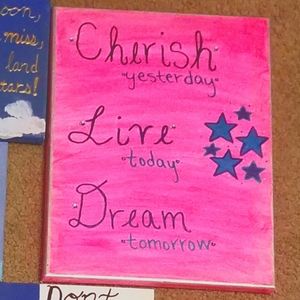 oon,
miss,
land
tars!
Cherish
"yesterday"
Live
"today"
Dream
"tomorrow"
Don't